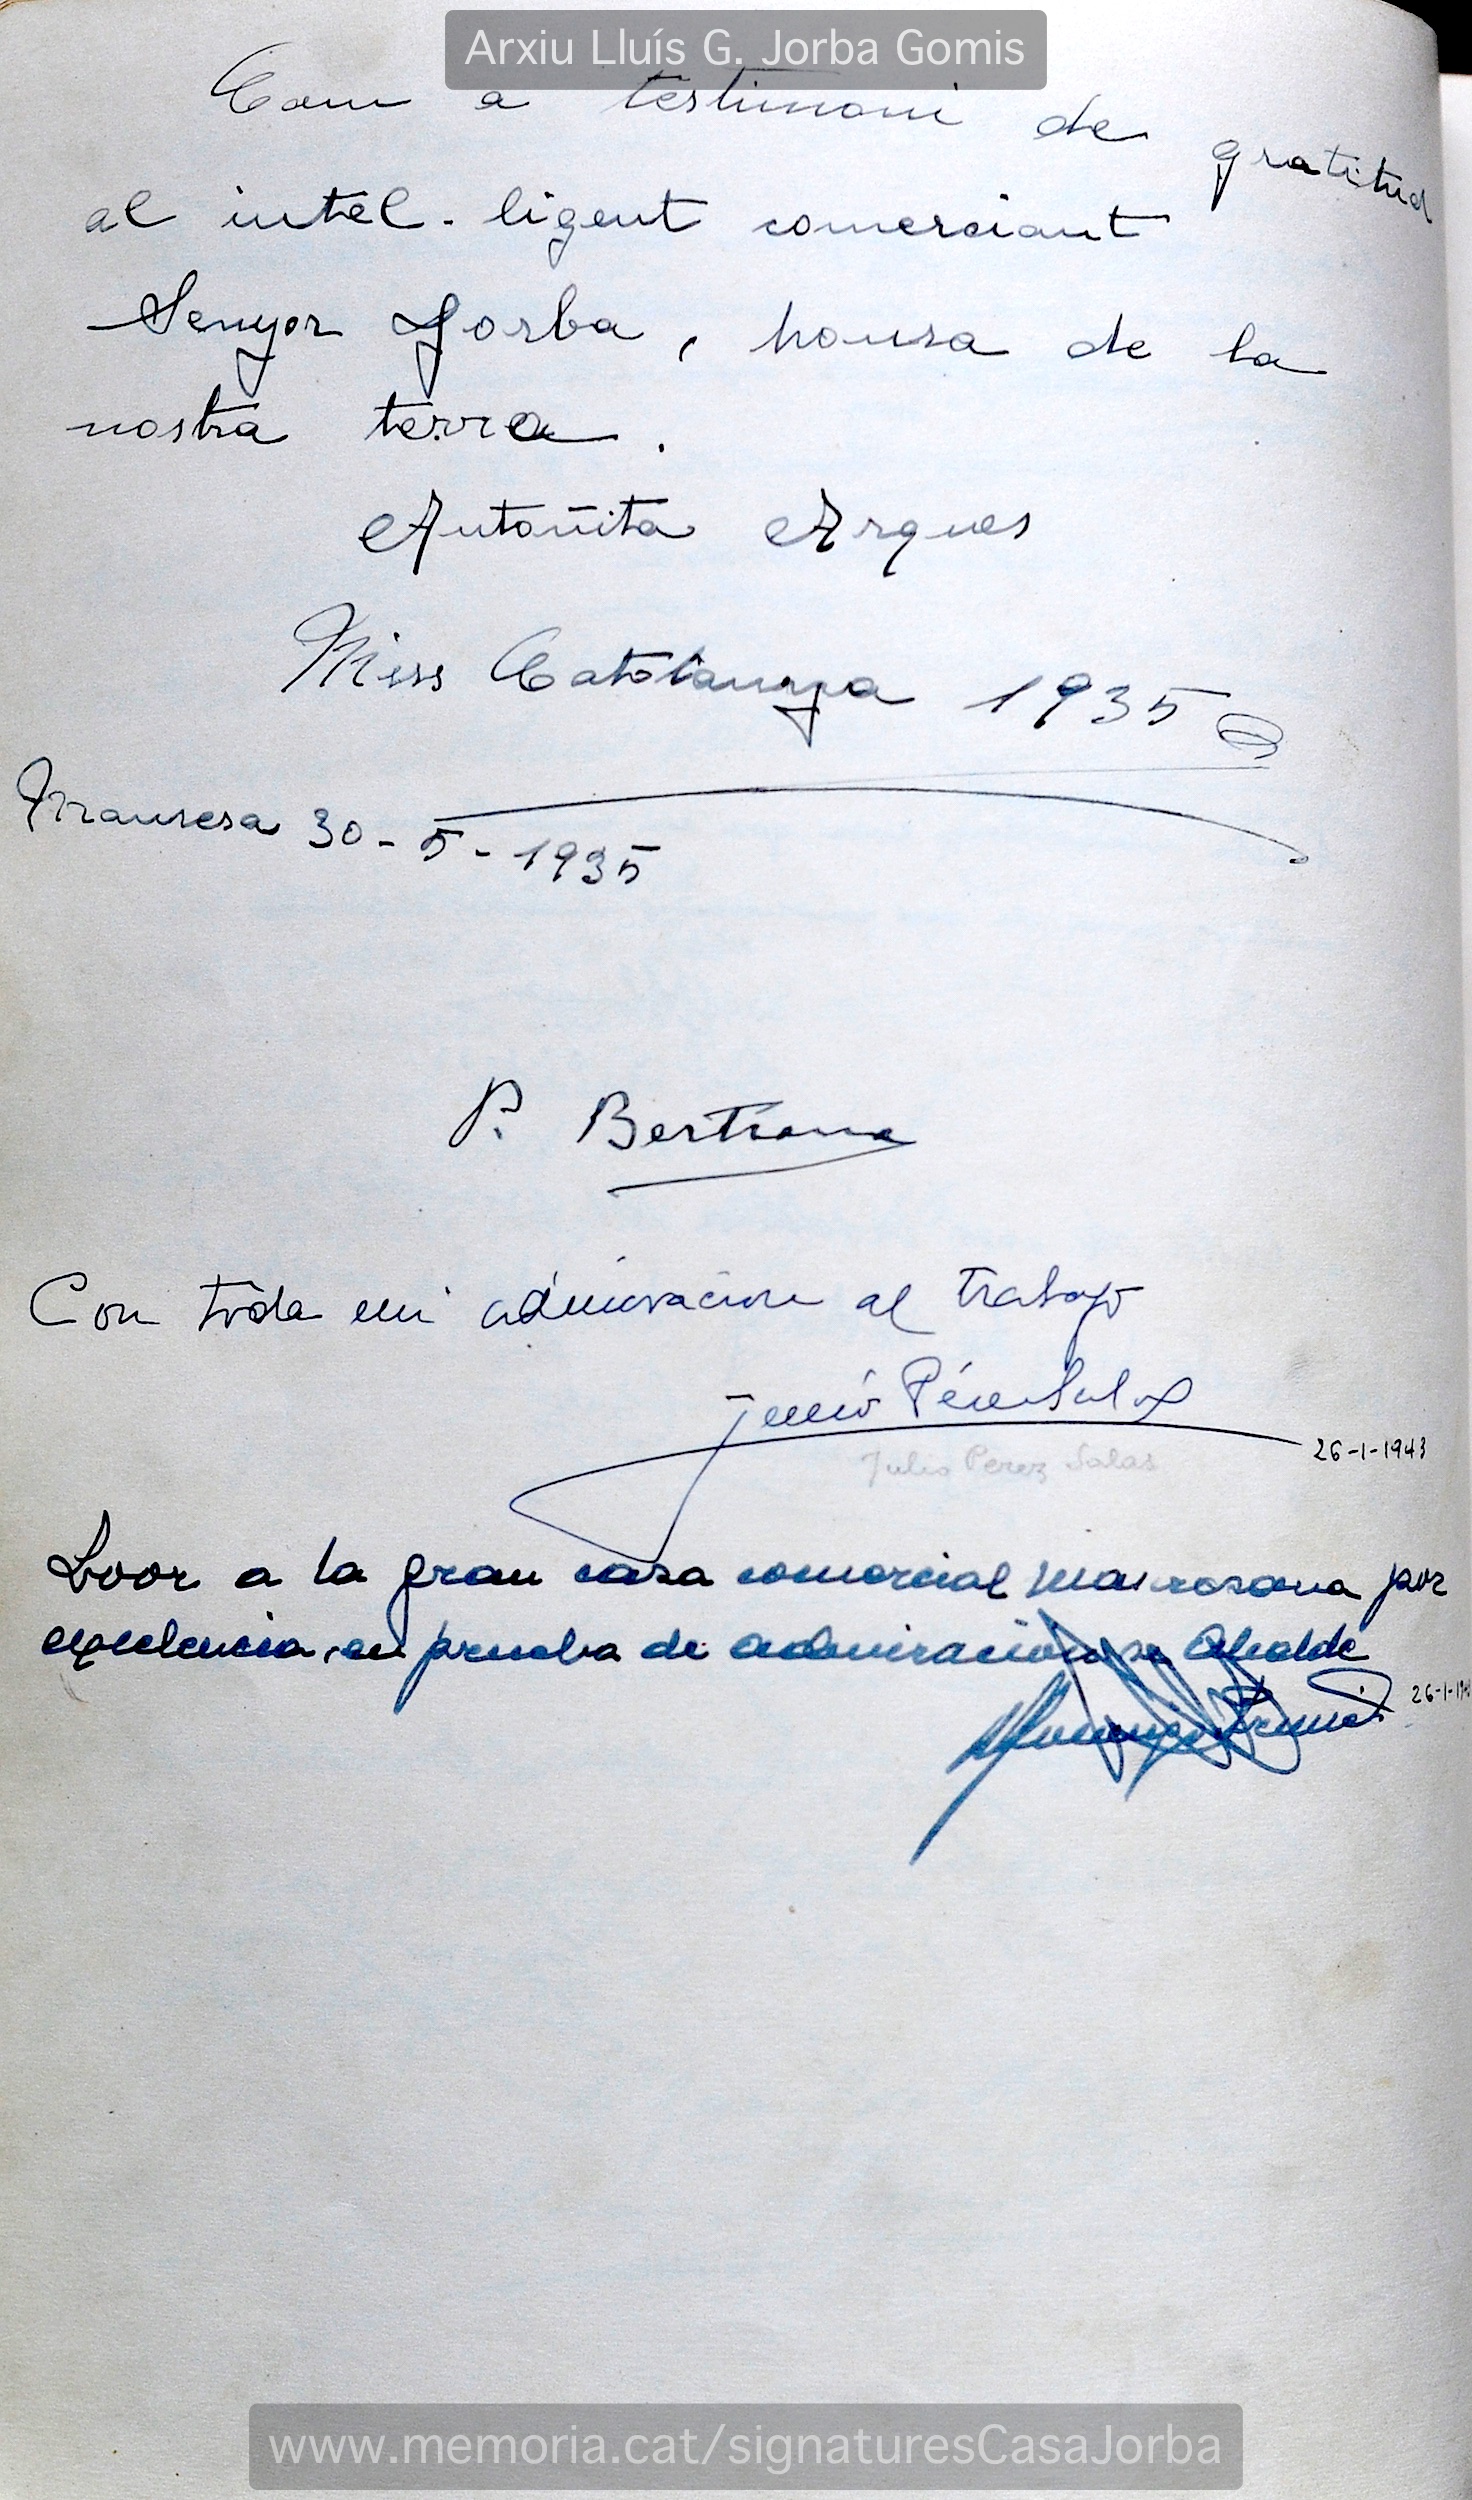 Arxiu Lluís G. Jorba Gomis
Com a testimoni de gratitud
al intel-ligent comerciant
Senyor Jorba, honra de la
nostra terra.
Antoñita Arques
Miss Catalunya 1935
Manresa 30-5-1935
P. Bertrana
Con toda mi admiracion al trabajo
Julio Pérez Salas
26-1-1943
Julio Perez Salas
Loor a la gran casa comercial manresana por
excelencia, en prueba de admiración su Alcalde
26-1-19
www.memoria.cat/signaturesCasaJorba